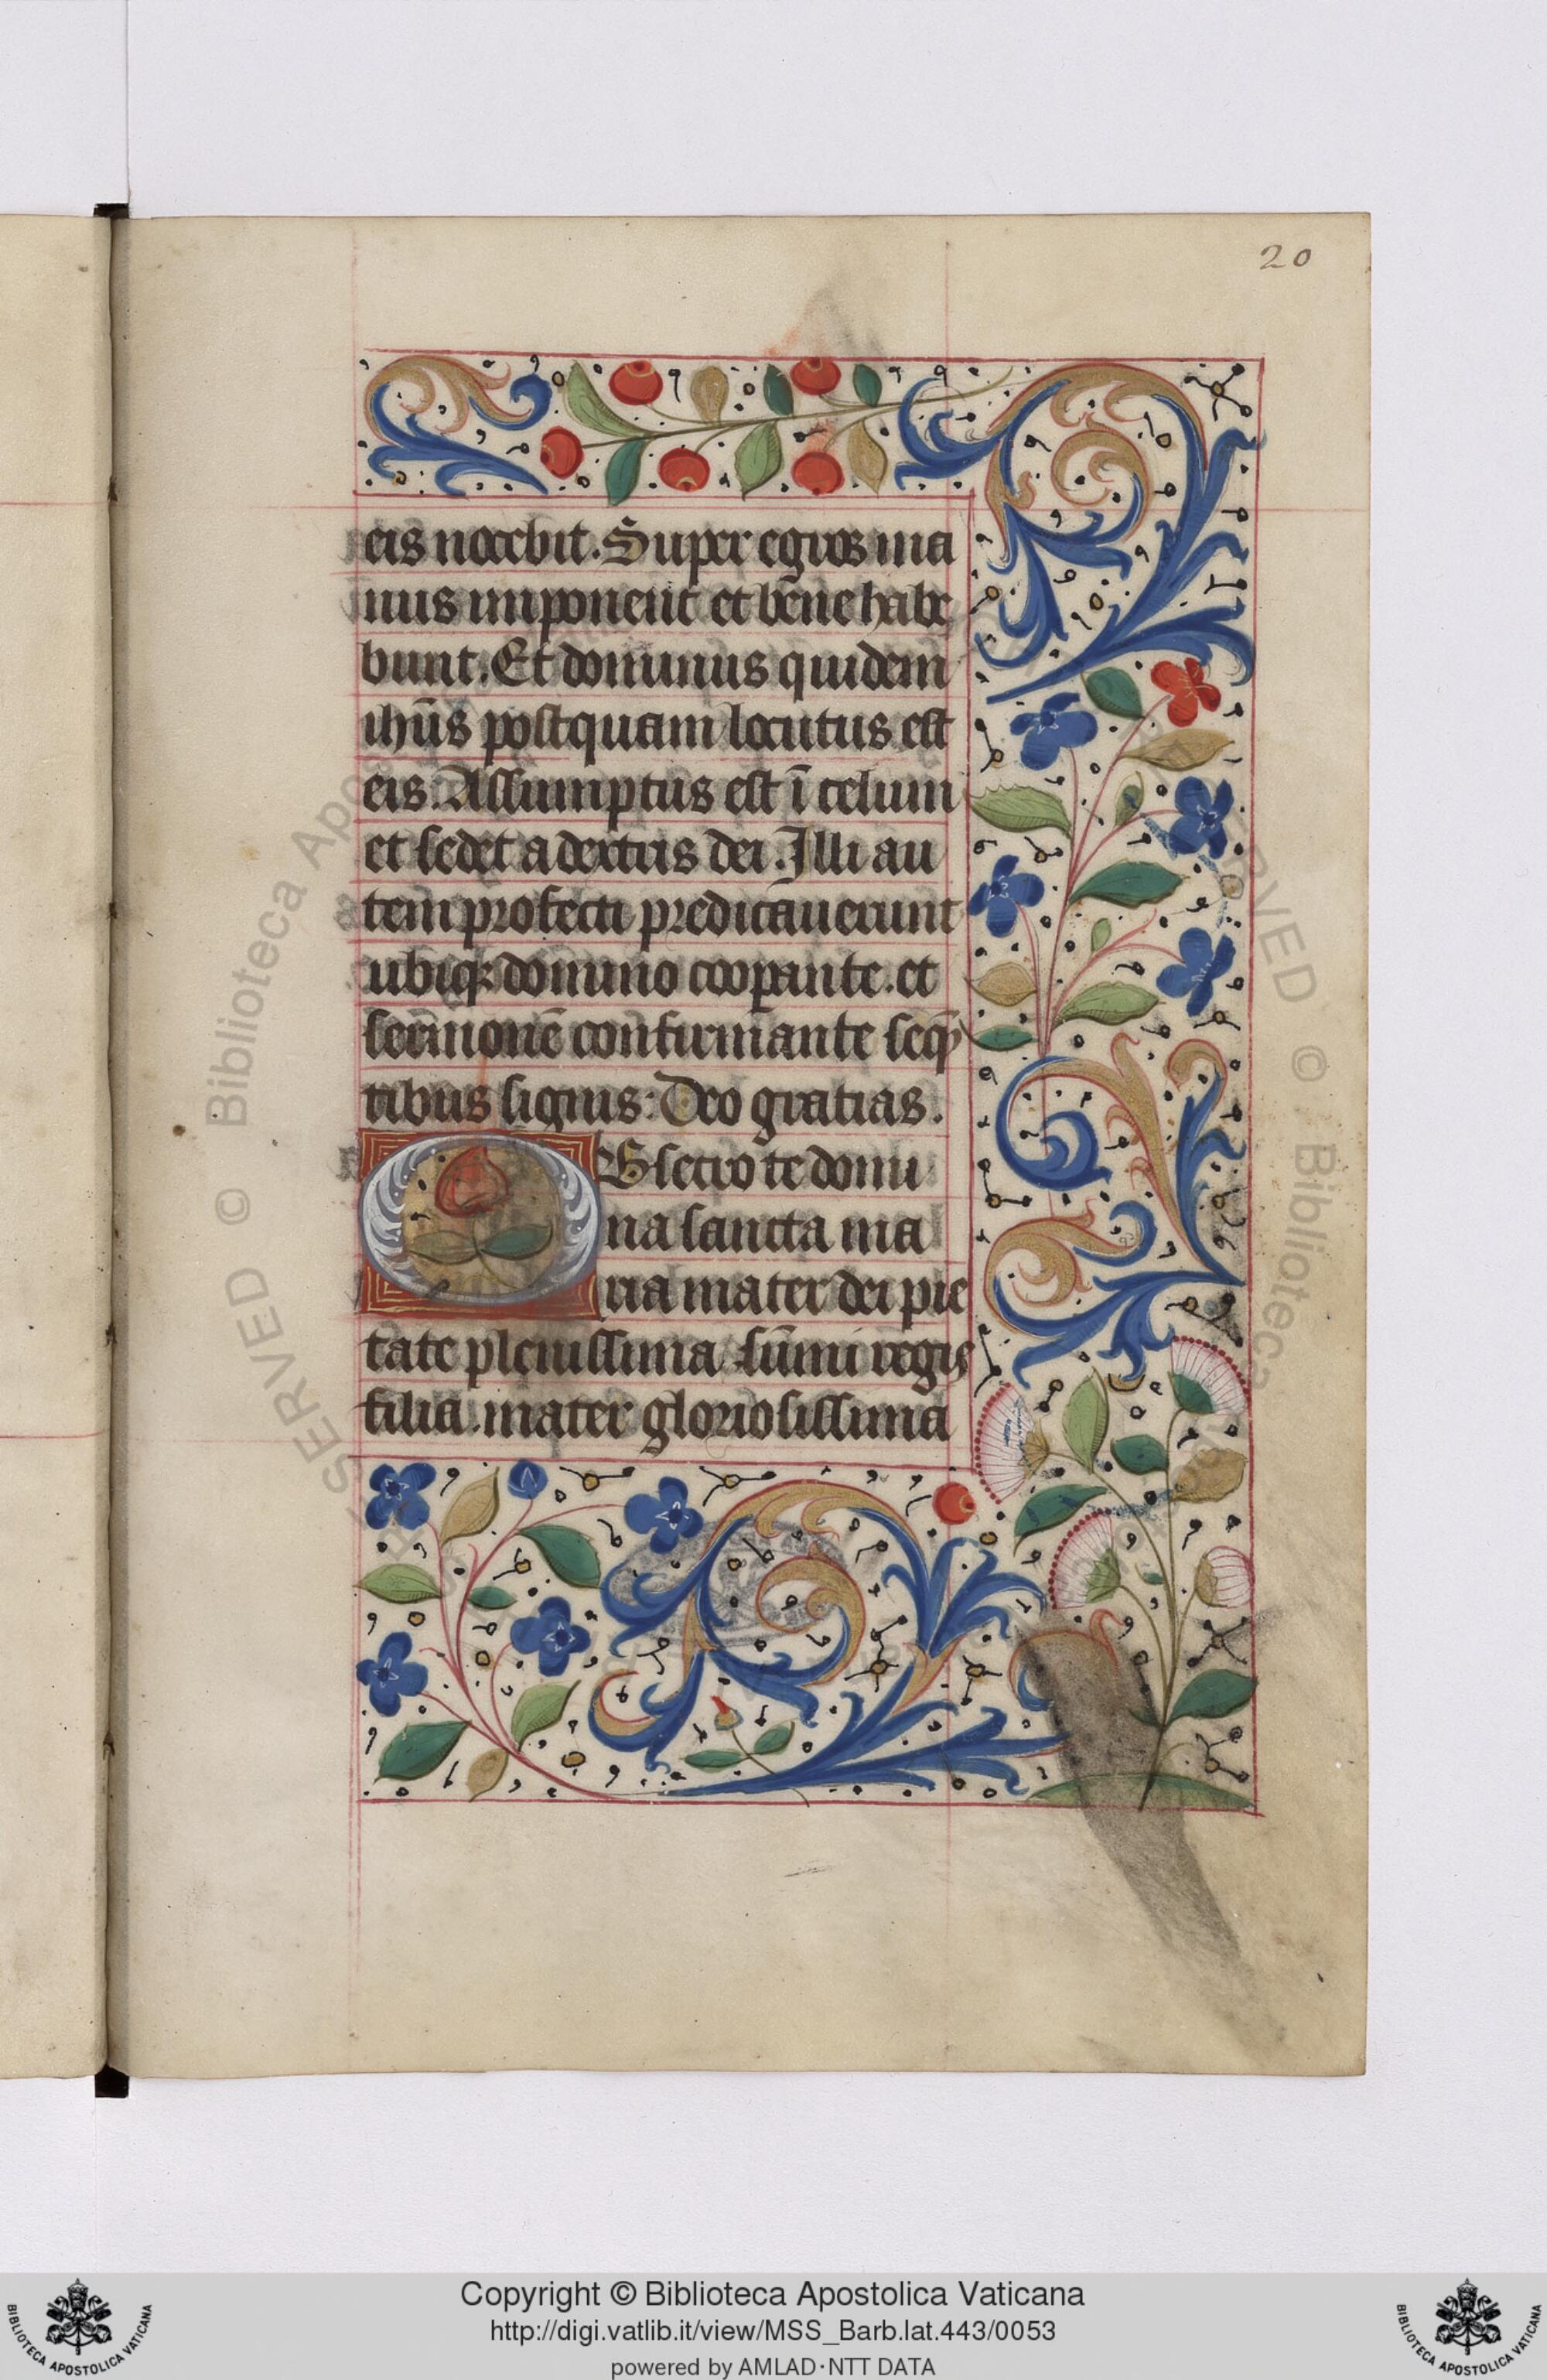 20
eis nocebit. Super egros ma
nus imponent et bene habe
bunt. Et dominus quidem
ihūs postquam locutus est
eis: Assumptus est ī celum
et sedet a dextris dei. Illi au
tem profecti predicauerunt
ubiqꝫ domino coopante. et
sermonē confirmante seqꝫ
tibus signis: Deo gratias.
OBsecro te domi
na sancta ma
ria mater dei pie
tate plenissima sūmi regis
filia. mater gloriosissima
Copyright © Biblioteca Apostolica Vaticana
http://digi.vatlib.it/view/MSS_Barb.lat.443/0053
powered by AMLAD·NTT DATA
BIBLIOTECA APOSTOLICA VATICANA
BIBLIOTECA APOSTOLICA VATICANA